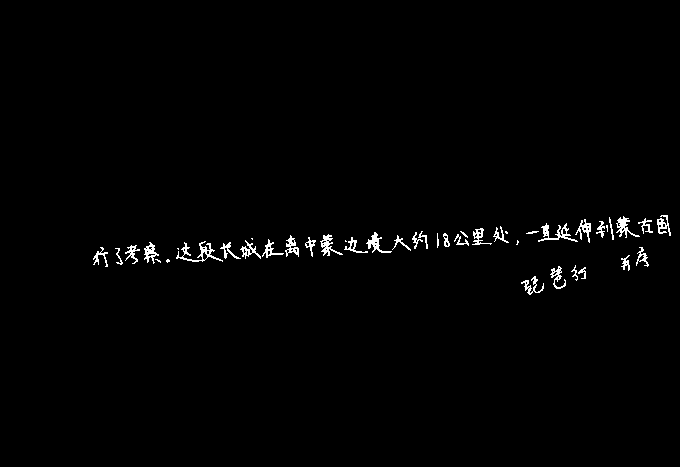 行了考察。这段长城在离中蒙边境大约18公里处，一直延伸到蒙古国
琵琶行 并序